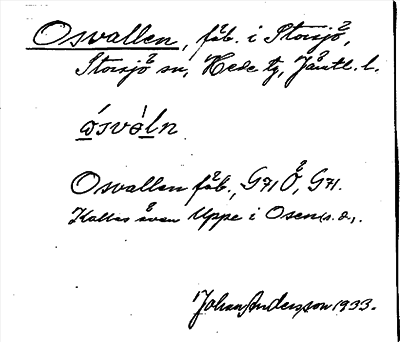 Osvallen, fäb. i Storsjö,
Storsjö sn, Hede tg, Jämtl. l.
ó̱svàḻn
Osvallen fäb., G71 Ö, G71.
Kallas även Uppe i Osen
Johan Andersson 1933.